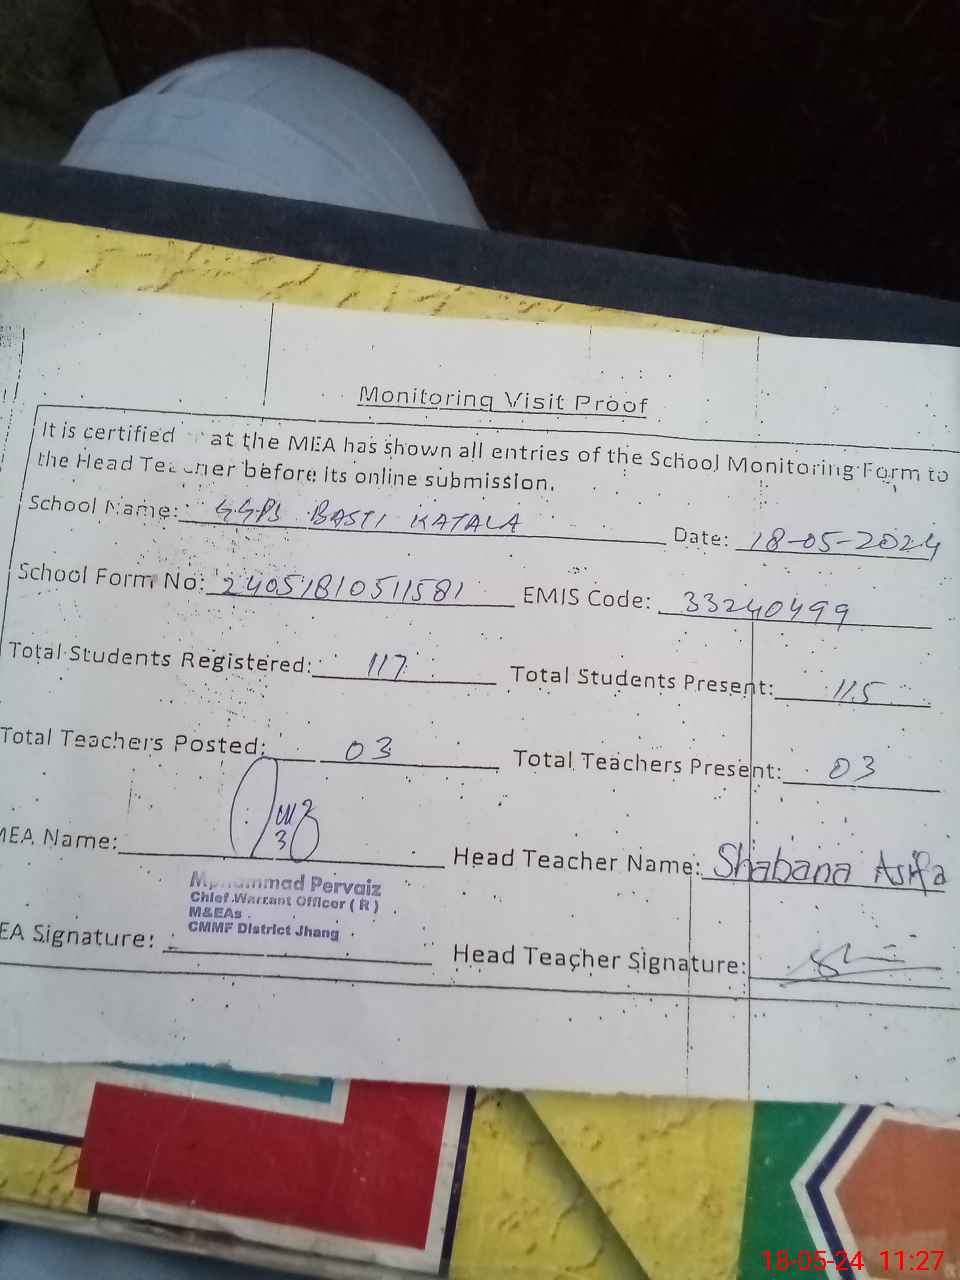 Monitoring Visit Proof
It is certified at the MEA has shown all entries of the School Monitoring Form to
the Head Teacher before its online submission.
School Name: GGPS BASTI KATALA Date: 18-05-2024
School Form No: 24051810511581 EMIS Code: 33240499
Total Students Registered: 117 Total Students Present: 115
Total Teachers Posted: 03 Total Teachers Present: 03
MEA Name: Head Teacher Name: Shabana Asifa
Muhammad Pervaiz
Chief Warrant Officer ( R )
M&EAs
CMMF District Jhang
EA Signature: Head Teacher Signature:
18-05-24 11:27